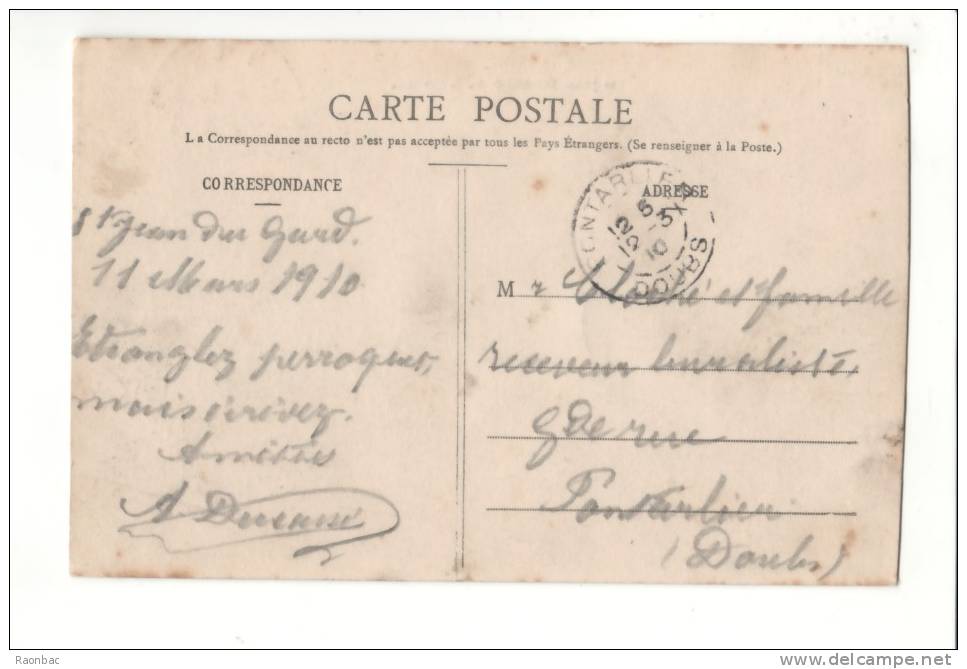 CARTE POSTALE
La Correspondance au recto n'est pas acceptée par tous les Pays Étrangers. (Se renseigner à la Poste.)
CORRESPONDANCE
St Jean du Gard.
11 Mars 1910
Etranglez perroquet,
mais
Amitiés
A
ADRESSE
PONTARLIER
12 5
12 - 3
10
DOUBS
M r et famille
receveur buraliste,
Gde rue
Pontarlier
(Doubs)
Raonbac
www.delcampe.net